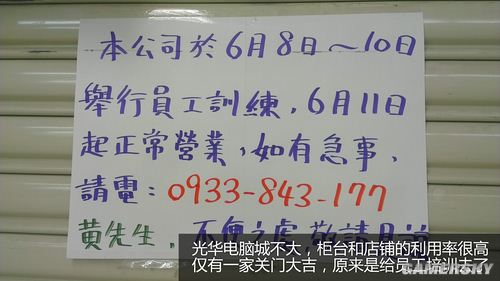 本公司於6月8日～10日
舉行員工訓練，6月11日
起正常營業，如有急事、
請電：0933-843-177
黃先生，不便之處，敬請見諒
光华电脑城不大，柜台和店铺的利用率很高
仅有一家关门大吉，原来是给员工培训去了
GAMERSKY